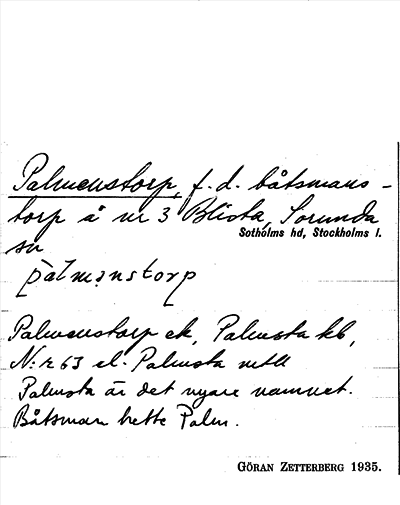 Palmenstorp, f.d. båtsmans-
torp å nr 3 Blista, Sorunda
Sotholms hd, Stockholms l.
sn
palmanstorp
Palmenstorp ek, Palmsta kb,
N:r 63 el. Palmsta mtll
Palmsta är det nyare namnet.
Båtsman hette Palm.
GÖRAN ZETTERBERG 1935.